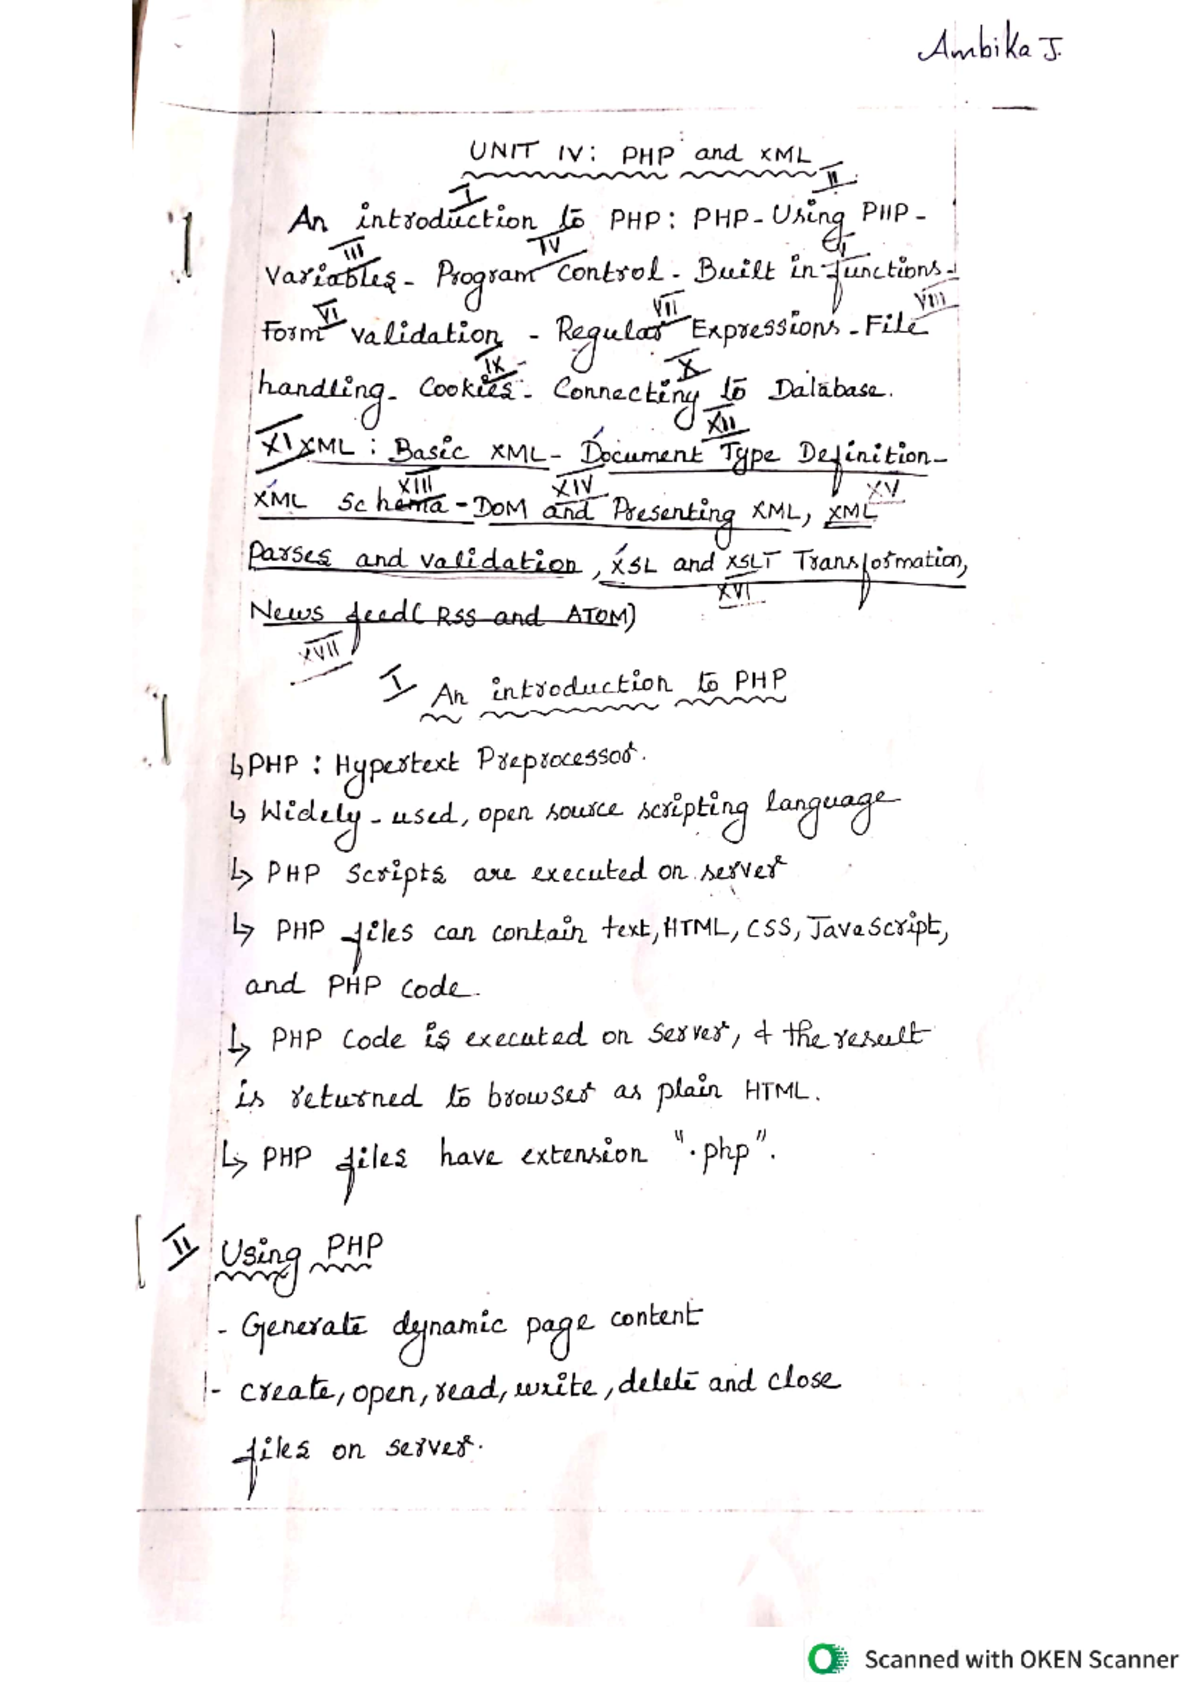 Ambika J.
UNIT IV: PHP and XML
I II
An introduction to PHP: PHP-Using PHP-
III IV
Variables - Program control - Built in functions -
VI VII VIII
Form validation - Regular Expressions - File
IX X
handling - Cookies - Connecting to Database.
XII
XI XML : Basic XML - Document Type Definition -
XIII XIV XV
XML Schema - DOM and Presenting XML, XML
Parses and validation, XSL and XSLT Transformation,
XVI
News feed (RSS and ATOM)
XVII
I An introduction to PHP
↳ PHP : Hypertext Preprocessor.
↳ Widely-used, open source scripting language
↳ PHP Scripts are executed on server
↳ PHP files can contain text, HTML, CSS, JavaScript,
and PHP code.
↳ PHP Code is executed on server, & the result
is returned to browser as plain HTML.
↳ PHP files have extension ".php".
II Using PHP
- Generate dynamic page content
- create, open, read, write, delete and close
files on server.
Scanned with OKEN Scanner